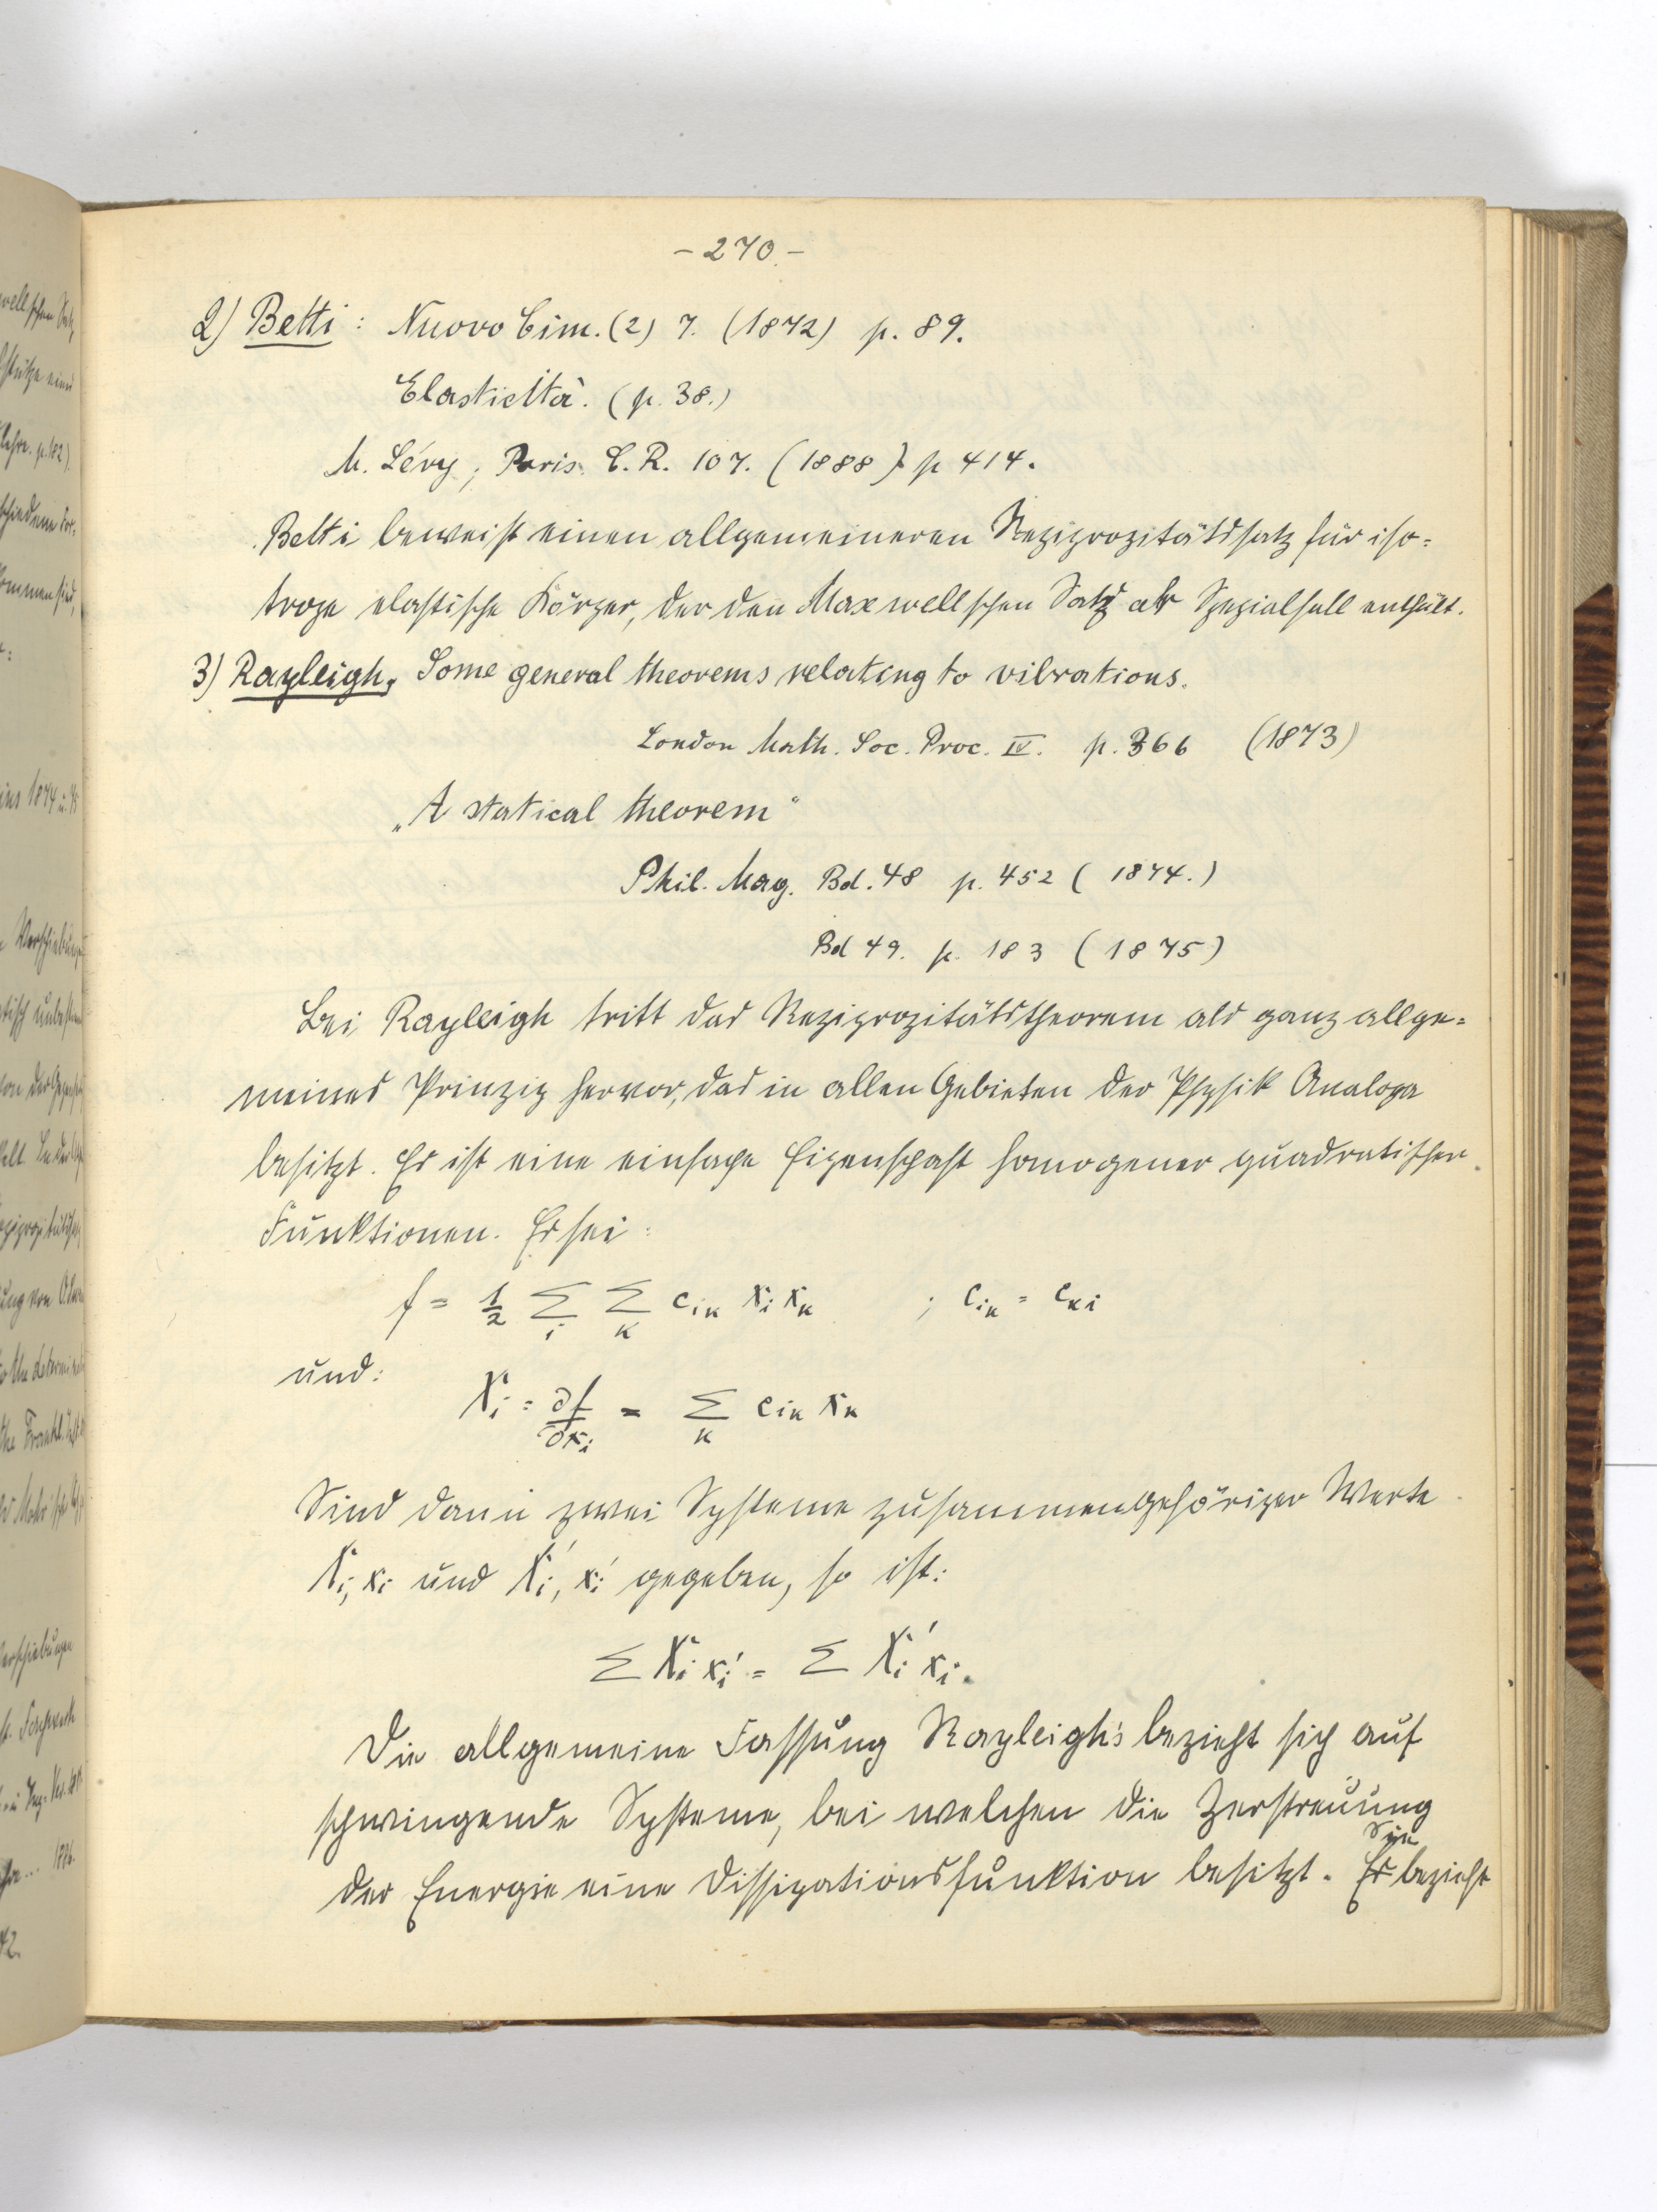 - 270. -
2) Betti: Nuovo Cim. (2) 7. (1872) p. 89.
Elasticità. (p. 38.)
M. Lévy, Paris. C. R. 107. (1888) p 414.
Betti beweist einen allgemeineren Reziprozitätssatz für iso=
trope elastische Körper, der den Maxwellschen Satz als Spezialfall enthält.
3) Rayleigh, Some general theorems relating to vibrations.
London Math. Soc. Proc. IV. p. 366 (1873)
„A statical theorem“
Phil. Mag. Bd. 48 p. 452 (1874.)
Bd 49. p. 183 (1875)
Bei Rayleigh tritt das Reziprozitätstheorem als ganz allge=
meines Prinzip hervor, das in allen Gebieten der Physik Analoga
besitzt. Es ist eine einfache Eigenschaft homogener quadratischer
Funktionen. Es sei:
f = 1/2 Σ_i Σ_k c_ik x_i x_k ; c_ik = c_ki
und:
X_i = ∂f/∂x_i = Σ_k c_ik x_k
Sind dann zwei Systeme zusammengehöriger Werte
X_i, x_i und X_i', x_i' gegeben, so ist:
Σ X_i x_i' = Σ X_i' x_i.
Die allgemeine Fassung Rayleigh's bezieht sich auf
schwingende Systeme, bei welchen die Zerstreuung
Sie
der Energie eine Dissipationsfunktion besitzt. Es bezieht